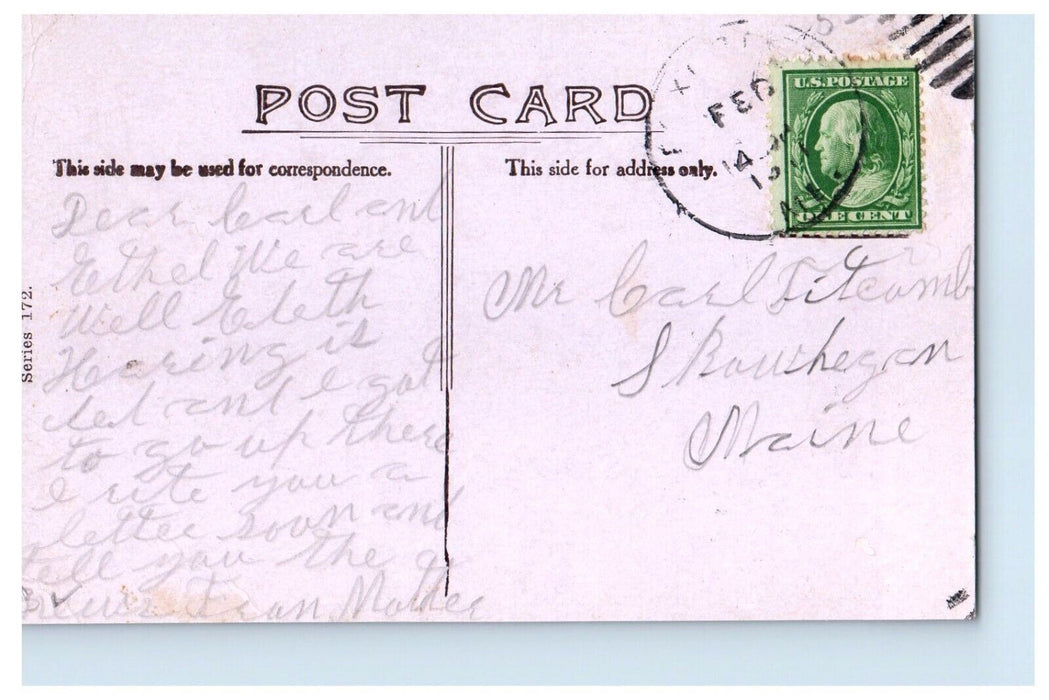 POST CARD
This side may be used for correspondence.
This side for address only.
FEB
14
U.S. POSTAGE
ONE CENT
ME.
Series 172.
Dear Carl and
Ethel We are
Well
Hearing is
and I got
to go up there
I rite you a
letter soon and
tell you the
From Mother
Mr Carl Titcomb
Skowhegan
Maine